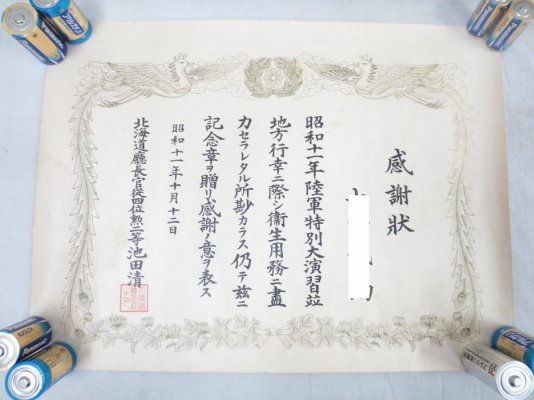 感謝状
昭和十一年陸軍特別大演習並
地方行幸ニ際シ衛生用務ニ盡
力セラレタル所尠カラス仍テ茲ニ
記念章ヲ贈リ感謝ノ意ヲ表ス
昭和十一年十月十二日
北海道廳長官從四位勲三等池田清
Panasonic